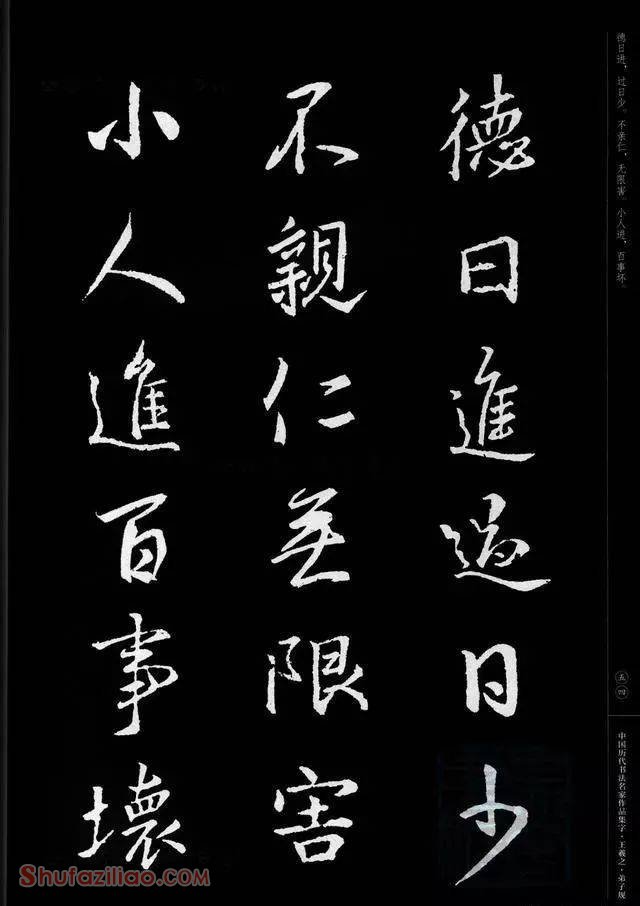 德日進過日少
不親仁無限害
小人進百事壞
德日进，过日少。不亲仁，无限害。小人进，百事坏。
五四
中国历代书法名家作品集字·王羲之·弟子规
Shufaziliao.com